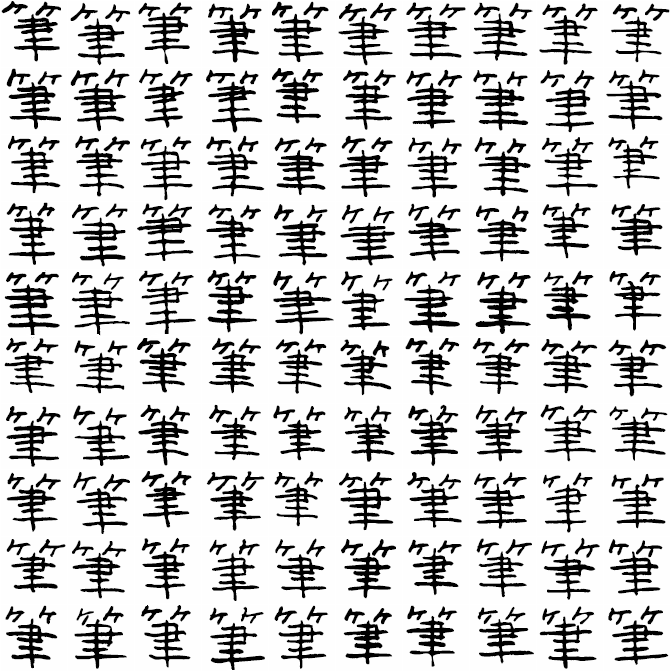 筆筆筆筆筆筆筆筆筆筆
筆筆筆筆筆筆筆筆筆筆
筆筆筆筆筆筆筆筆筆筆
筆筆筆筆筆筆筆筆筆筆
筆筆筆筆筆筆筆筆筆筆
筆筆筆筆筆筆筆筆筆筆
筆筆筆筆筆筆筆筆筆筆
筆筆筆筆筆筆筆筆筆筆
筆筆筆筆筆筆筆筆筆筆
筆筆筆筆筆筆筆筆筆筆